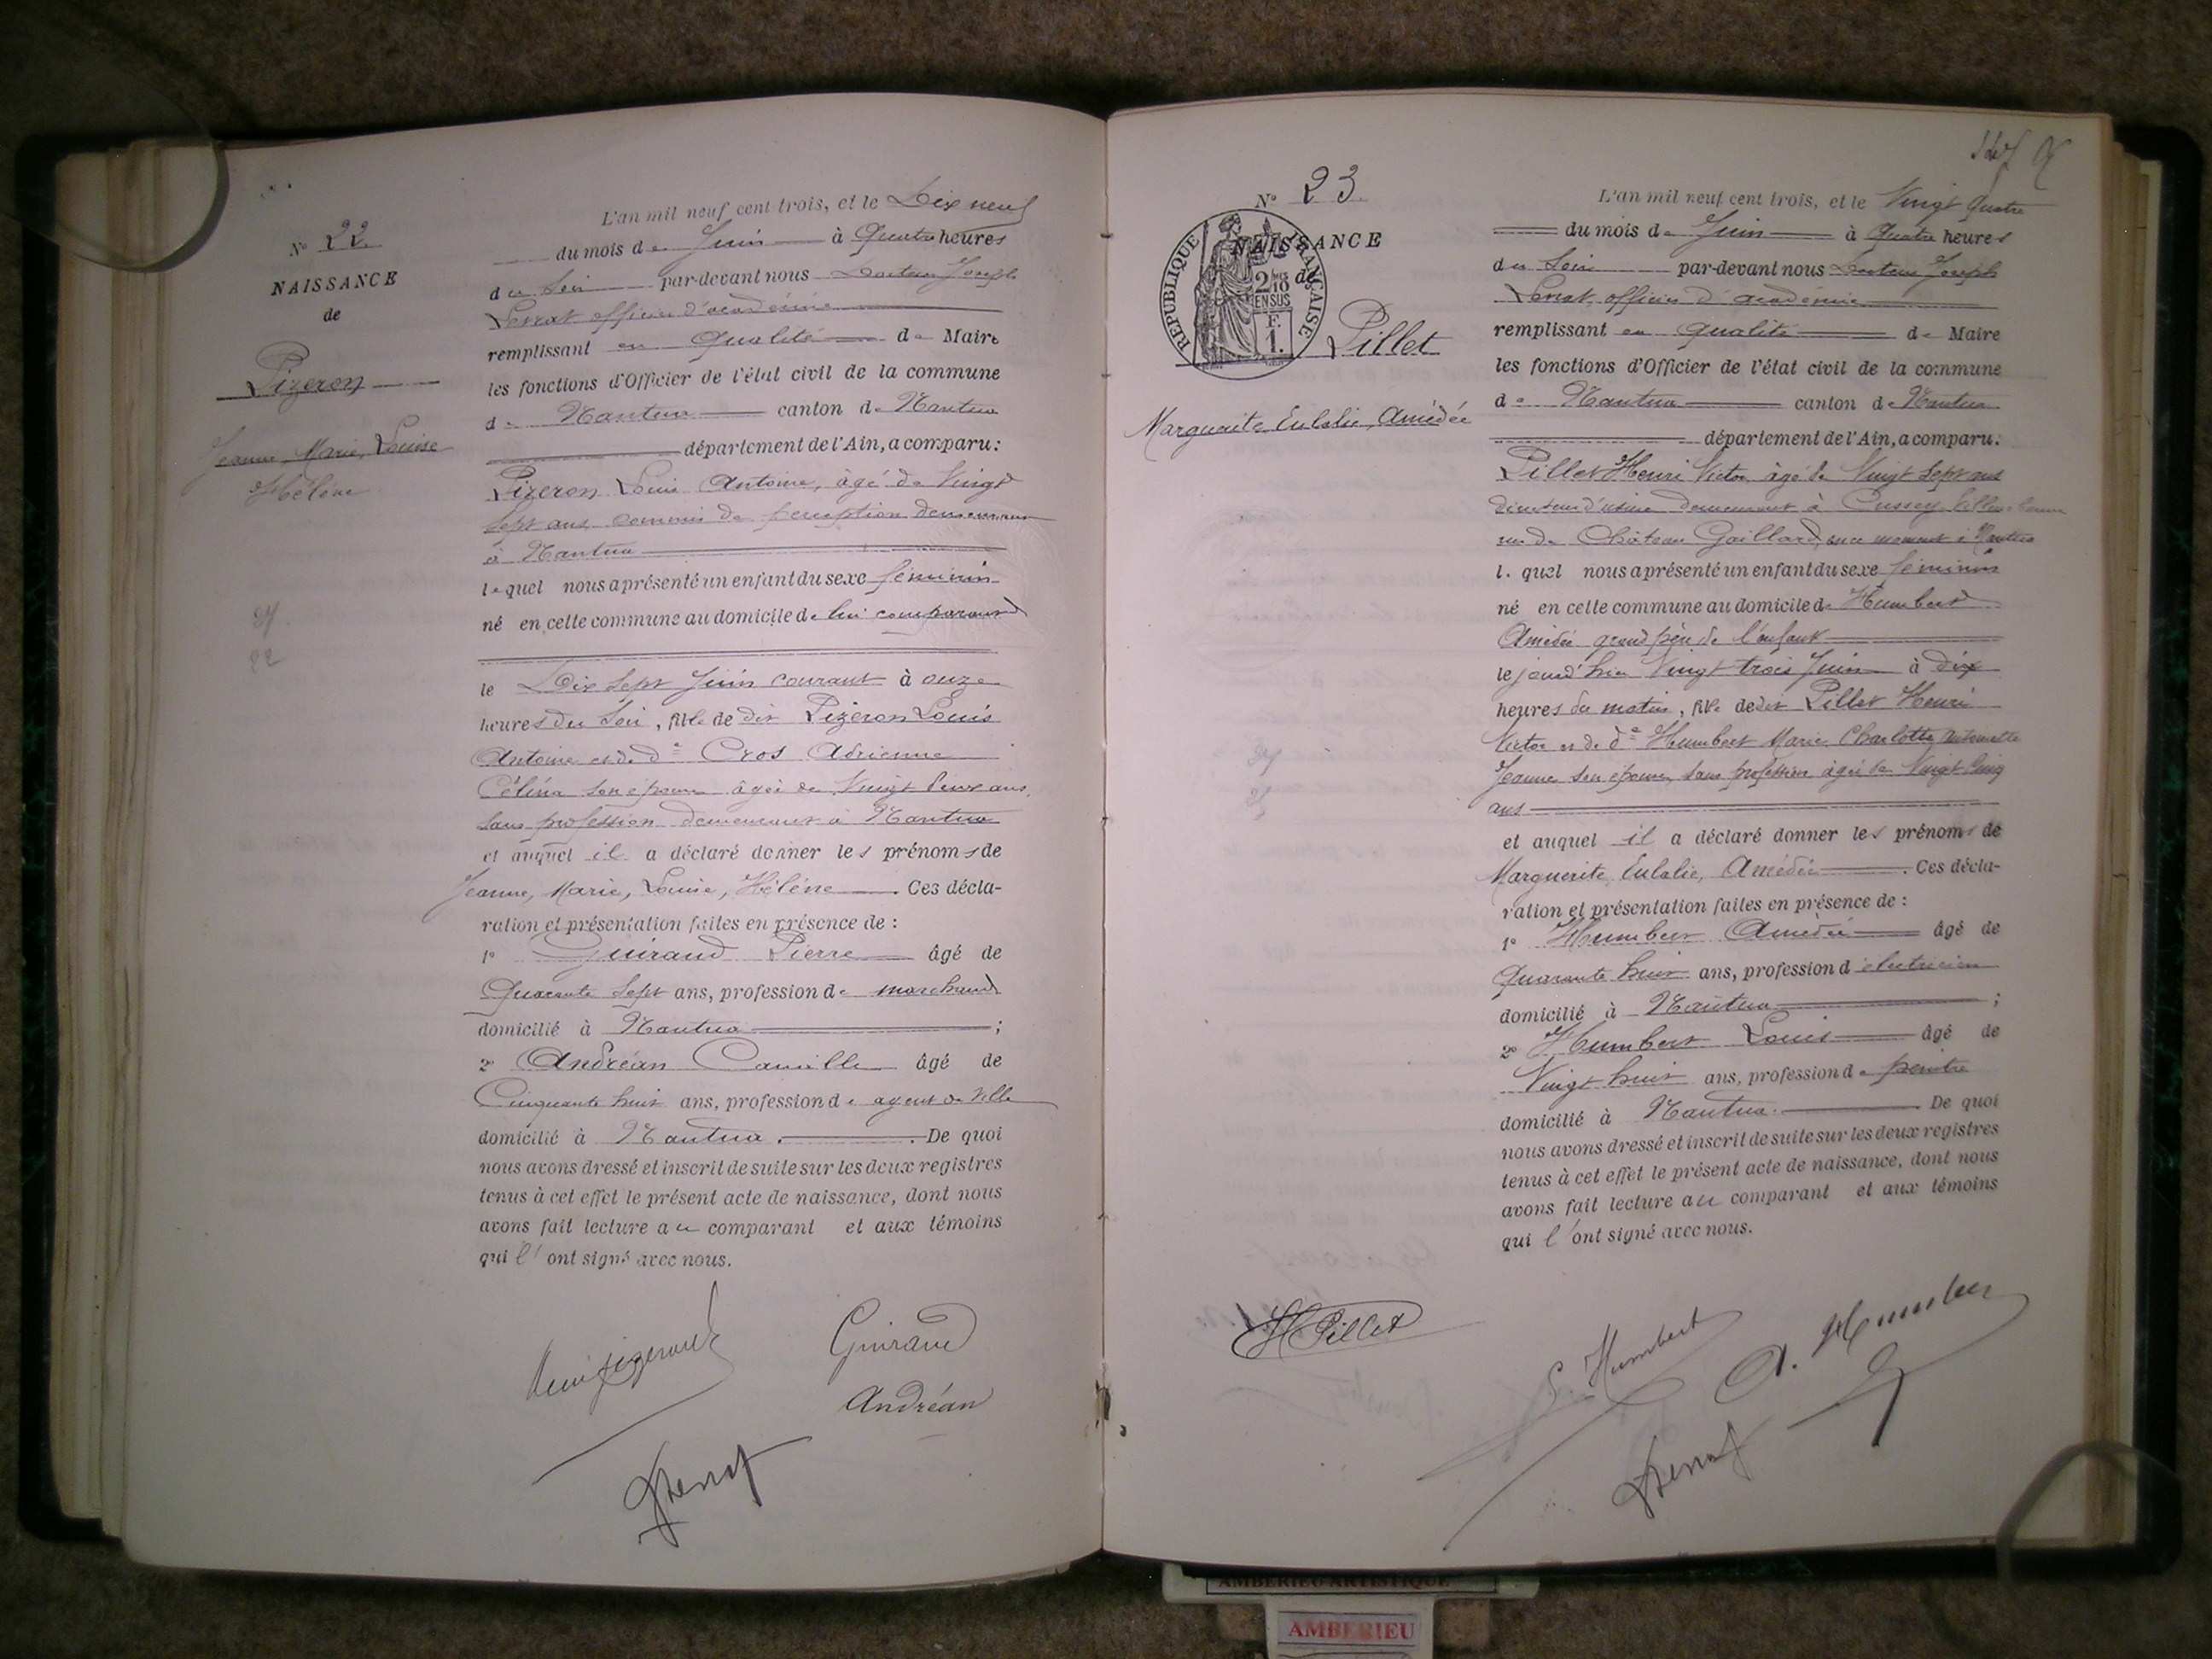 N° 22
NAISSANCE
de
Pizeron
Jeanne, Marie, Louise
Hélène
L'an mil neuf cent trois, et le Dix neuf
du mois de Juin à Quatre heures
du soir par-devant nous Docteur Joseph
officier d'académie
remplissant en qualité de Maire
les fonctions d'Officier de l'état civil de la commune
de Nantua canton de Nantua
département de l'Ain, a comparu:
Pizeron Louis Antoine, âgé de Vingt
sept ans commis de perception demeurant
à Nantua
lequel nous a présenté un enfant du sexe féminin
né en cette commune au domicile de lui comparant
le Dix sept Juin courant à onze
heures du soir, fille de dit Pizeron Louis
Antoine et de de Cros Adrienne
Célina son épouse âgée de Vingt deux ans
sans profession demeurant à Nantua
et auquel il a déclaré donner les prénoms de
Jeanne, Marie, Louise, Hélène. Ces décla-
ration et présentation faites en présence de :
1° Guiraud Pierre âgé de
Quarante sept ans, profession de marchand
domicilié à Nantua ;
2° Andréan Camille âgé de
Cinquante huit ans, profession de agent de ville
domicilié à Nantua. De quoi
nous avons dressé et inscrit de suite sur les deux registres
tenus à cet effet le présent acte de naissance, dont nous
avons fait lecture au comparant et aux témoins
qui l'ont signé avec nous.
Guiraud
Andréan
N° 23
NAISSANCE
de
REPUBLIQUE FRANÇAISE
2/10
EN SUS
F.
1.
Pillet
Marguerite Eulalie, Amédée
L'an mil neuf cent trois, et le Vingt quatre
du mois de Juin à Quatre heures
du soir par-devant nous Docteur Joseph
officier d'académie
remplissant en qualité de Maire
les fonctions d'Officier de l'état civil de la commune
de Nantua canton de Nantua
département de l'Ain, a comparu.
Pillet Henri Victor âgé de Vingt sept ans
directeur d'usine demeurant à Cusset Villeurbanne
rue de Château Gaillard, en ce moment à Nantua
lequel nous a présenté un enfant du sexe féminin
né en cette commune au domicile de Humbert
Amédée grand père de l'enfant
le jourd'hier Vingt trois Juin à dix
heures du matin, fille de dit Pillet Henri
Victor et de de Humbert Marie Charlotte Antoinette
Jeanne son épouse, sans profession âgée de Vingt cinq
ans
et auquel il a déclaré donner les prénoms de
Marguerite, Eulalie, Amédée. Ces décla-
ration et présentation faites en présence de :
1° Humbert Amédée âgé de
Quarante huit ans, profession d'électricien
domicilié à Nantua ;
2° Humbert Louis âgé de
Vingt huit ans, profession de peintre
domicilié à Nantua. De quoi
nous avons dressé et inscrit de suite sur les deux registres
tenus à cet effet le présent acte de naissance, dont nous
avons fait lecture au comparant et aux témoins
qui l'ont signé avec nous.
H Pillet
L. Humbert
A. Humbert
AMBERIEU ARTISTIQUE
AMBERIEU